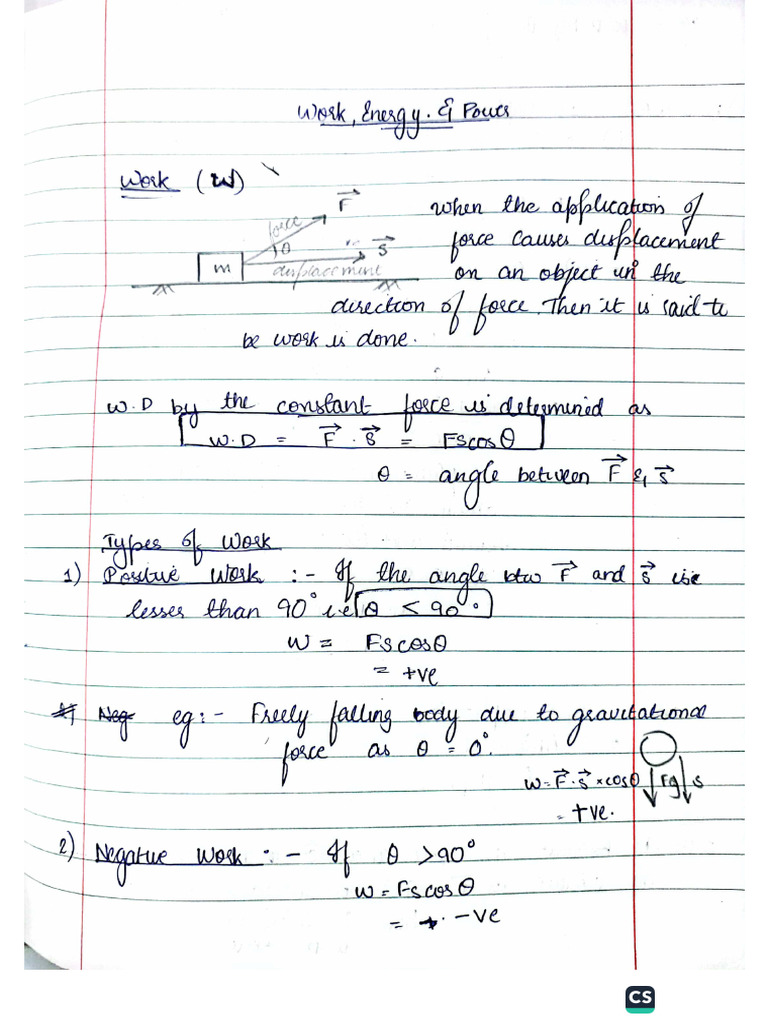 Work, Energy. & Power
Work (W)
F⃗
force
θ
S⃗
m
displacement
When the application of
force causes displacement
on an object in the
direction of force. Then it is said to
be work is done.
W.D by the constant force is determined as
W.D = F⃗ . S⃗ = FS cosθ
θ = angle between F⃗ & S⃗
Types of Work
1) Positive Work :- If the angle btw F⃗ and S⃗ is
lesser than 90° i.e θ < 90°
W = FS cosθ
= +ve
2) Neg eg:- Freely falling body due to gravitational
force as θ = 0°.
W = F⃗ . S⃗ × cosθ
Fg S
= +ve.
2) Negative Work :- If θ > 90°
W = FS cosθ
= -ve
CS